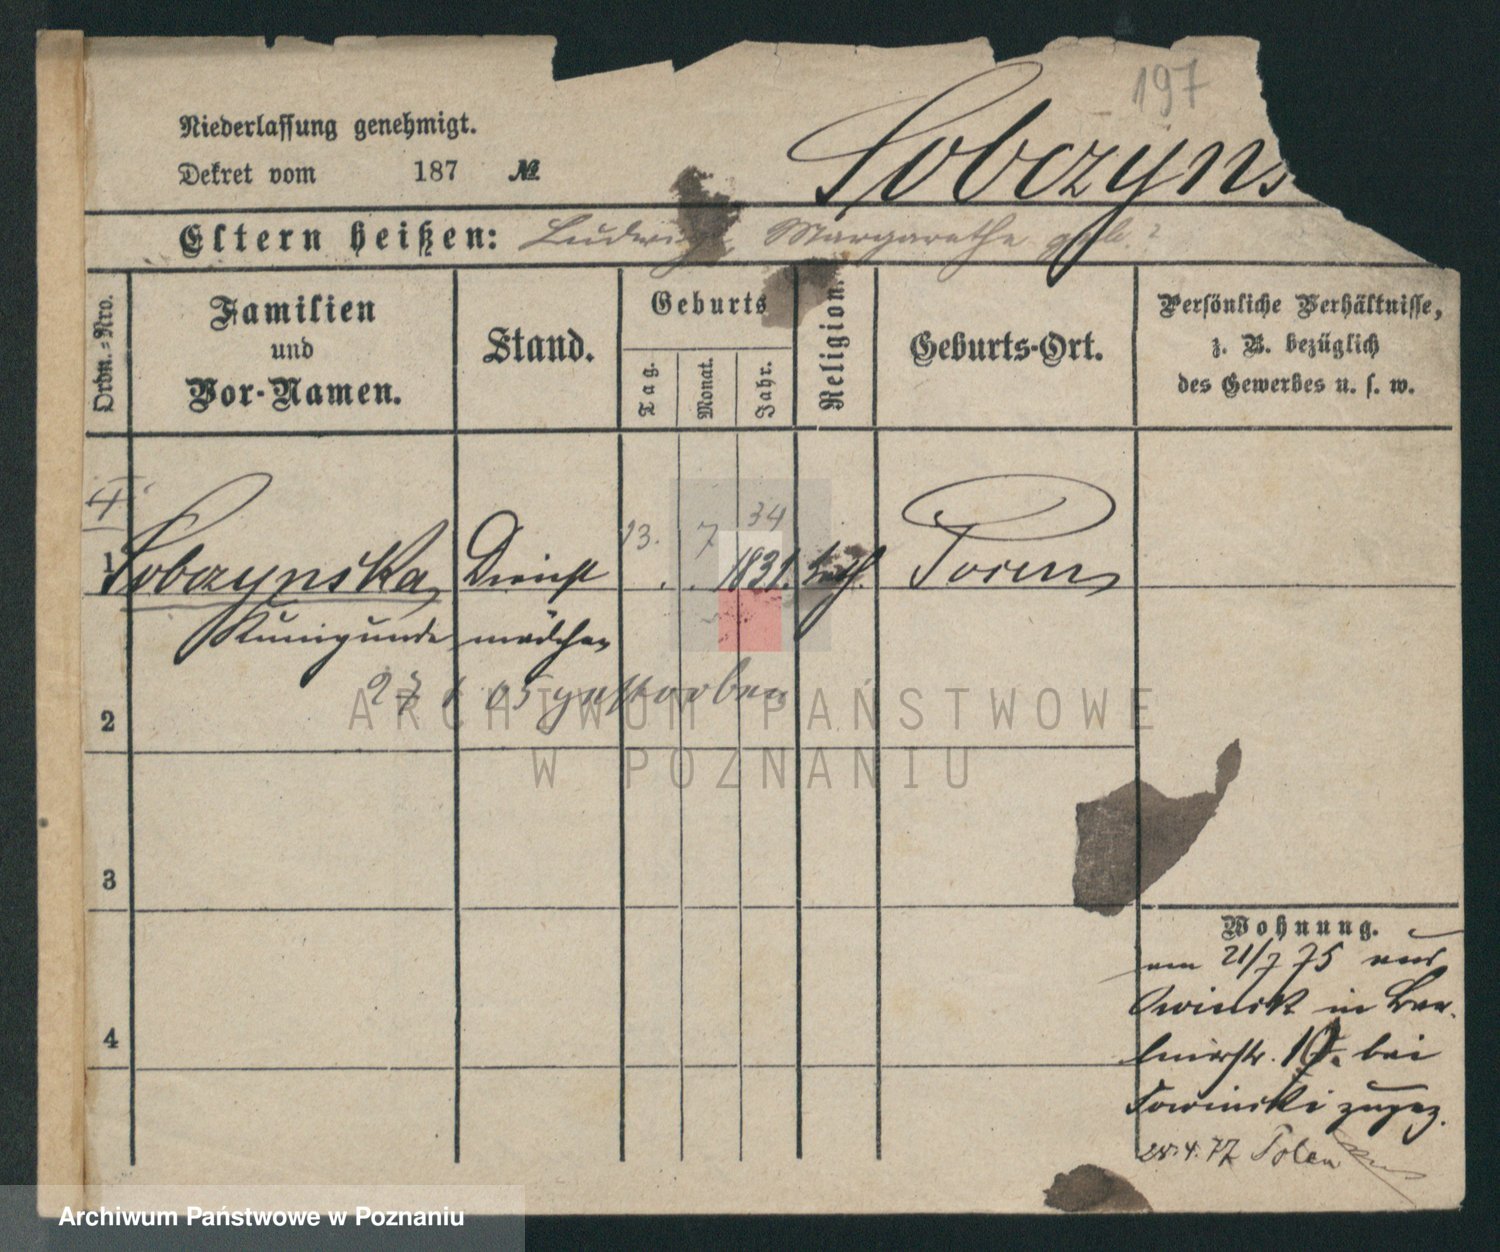 197
Niederlassung genehmigt.
Dekret vom 187 №
Sobczyns
Eltern heißen: Ludwig, Margarethe geb. ?
Ordn.=Nro.
Familien
und
Vor-Namen.
Stand.
Geburts
Tag.
Monat.
Jahr.
Religion.
Geburts-Ort.
Persönliche Verhältnisse,
z. B. bezüglich
des Gewerbes u. s. w.
34
1 Sobczynska Dienst 13. 7 1831. kath. Posen
Kunigunde mädchen
27 1 05 gestorben
2
3
4
Wohnung.
am 21/7 75 aus
Owinsk in
10. bei
zugez.
28.4.77 Polen
ARCHIWUM PAŃSTWOWE
W POZNANIU
Archiwum Państwowe w Poznaniu